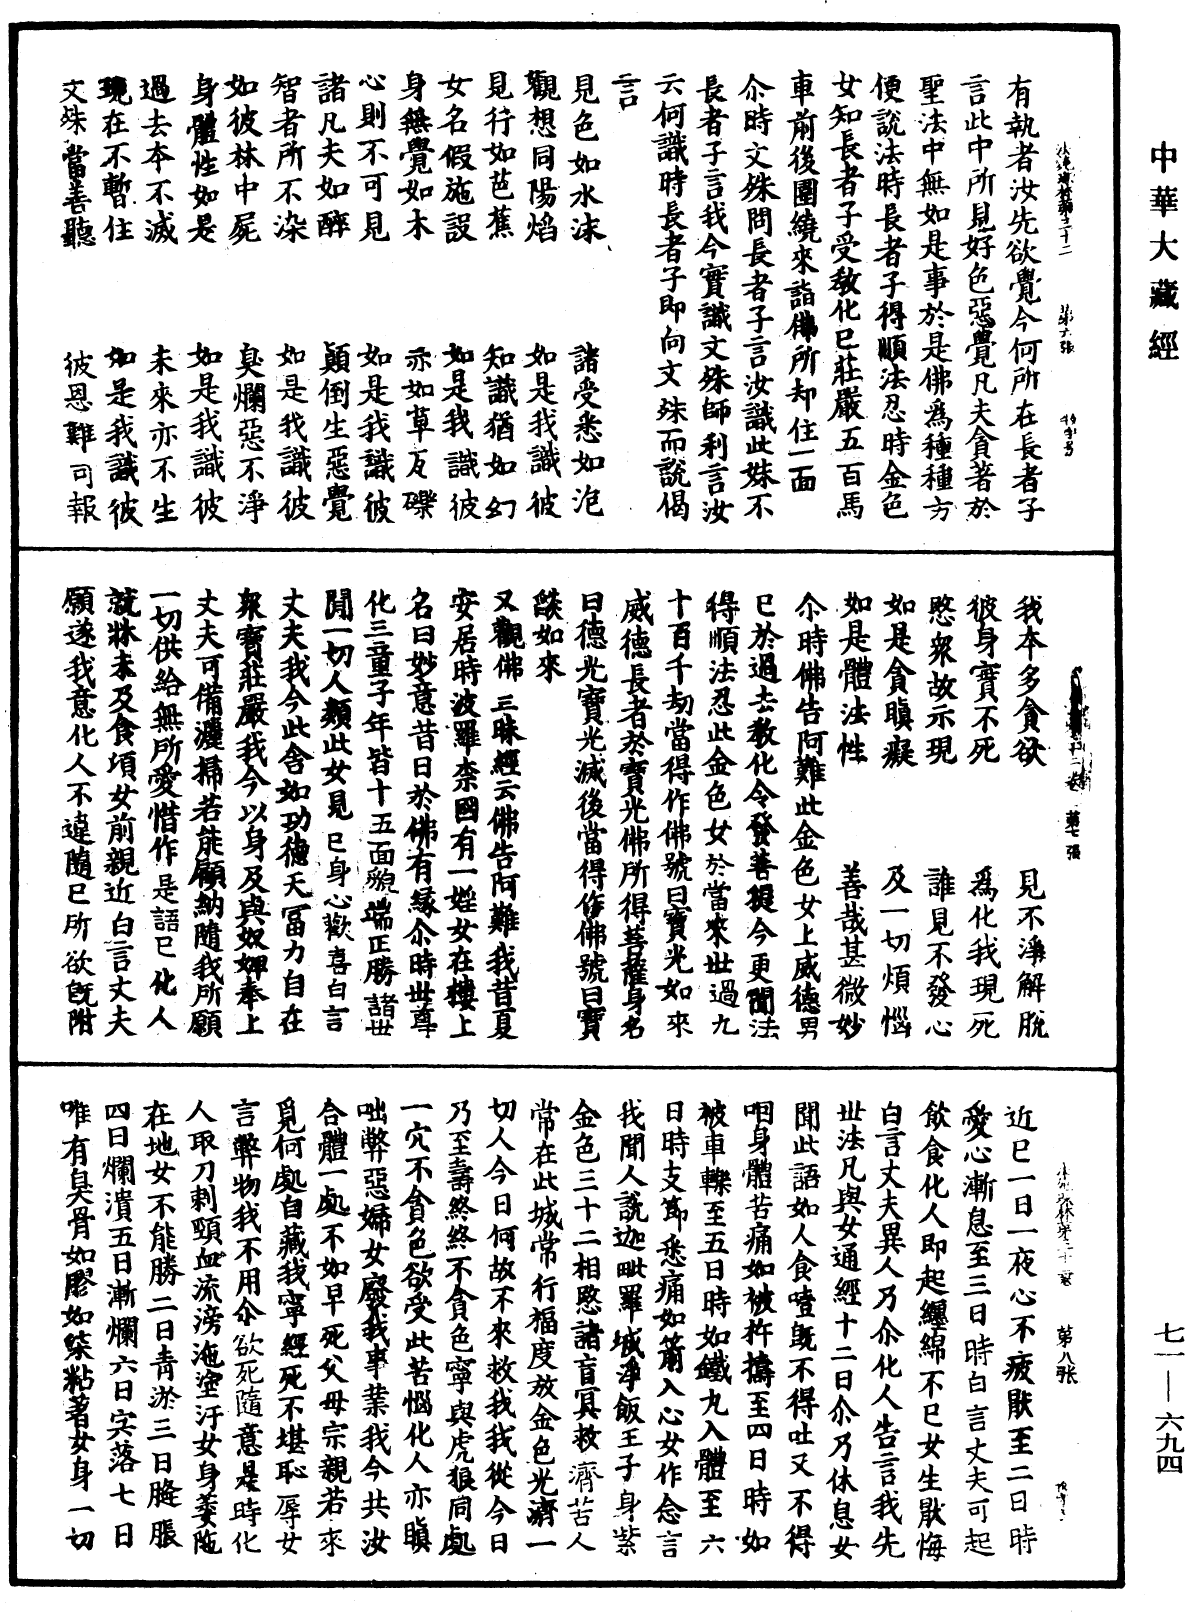 中華大藏經
七一—六九四
有執者汝先欲覺今何所在長者子
言此中所見好色惡覺凡夫貪著於
聖法中無如是事於是佛爲種種方
便說法時長者子得順法忍時金色
女知長者子受教化已莊嚴五百馬
車前後圍繞來詣佛所却住一面
尒時文殊問長者子言汝識此妹不
長者子言我今實識文殊師利言汝
云何識時長者子即向文殊而說偈
言
見色如水沫　諸受悉如泡
觀想同陽焰　如是我識彼
見行如芭蕉　知識猶如幻
女名假施設　如是我識彼
身無覺如木　亦如草瓦礫
心則不可見　如是我識彼
諸凡夫如醉　顛倒生惡覺
智者所不染　如是我識彼
如彼林中屍　臭爛惡不淨
身體性如是　如是我識彼
過去本不滅　未來亦不生
現在不暫住　如是我識彼
文殊當善聽　彼恩難可報
我本多貪欲　見不淨解脫
彼身實不死　爲化我現死
愍衆故示現　誰見不發心
如是貪瞋癡　及一切煩惱
如是體法性　善哉甚微妙
尒時佛告阿難此金色女上威德男
已於過去教化令發菩提今更聞法
得順法忍此金色女於當來世過九
十百千劫當得作佛號曰寶光如來
威德長者於寶光佛所得菩薩身名
曰德光寶光滅後當得作佛號曰寶
燄如來
又觀佛三昧經云佛告阿難我昔夏
安居時波羅柰國有一婬女在樓上
名曰妙意昔日於佛有緣尒時世尊
化三童子年皆十五面貌端正勝諸世
間一切人類此女見已身心歡喜白言
丈夫我今此舍如功德天富力自在
衆寶莊嚴我今以身及與奴婢奉上
丈夫可備灑掃若能顧納隨我所願
一切供給無所愛惜作是語已化人
就牀未及食頃女前親近白言丈夫
願遂我意化人不違隨已所欲旣附
近已一日一夜心不疲厭至二日時
愛心漸息至三日時白言丈夫可起
飲食化人即起纏綿不已女生厭悔
白言丈夫異人乃尒化人告言我先
世法凡與女通經十二日尒乃休息女
聞此語如人食噎旣不得吐又不得
咽身體苦痛如被杵擣至四日時如
被車轢至五日時如鐵丸入體至六
日時支節悉痛如箭入心女作念言
我聞人說迦毗羅城淨飯王子身紫
金色三十二相愍諸盲冥救濟苦人
常在此城常行福度放金色光濟一
切人今日何故不來救我我從今日
乃至壽終終不貪色寧與虎狼同處
一穴不貪色欲受此苦惱化人亦瞋
咄弊惡婦女廢我事業我今共汝
合體一處不如早死父母宗親若來
覓何處自藏我寧經死不堪恥辱女
言弊物我不用尒欲死隨意是時化
人取刀刺頸血流滂沲塗汙女身萎陁
在地女不能勝二日青淤三日膖脹
四日爛潰五日漸爛六日宍落七日
唯有臭骨如膠如柒粘著女身一切